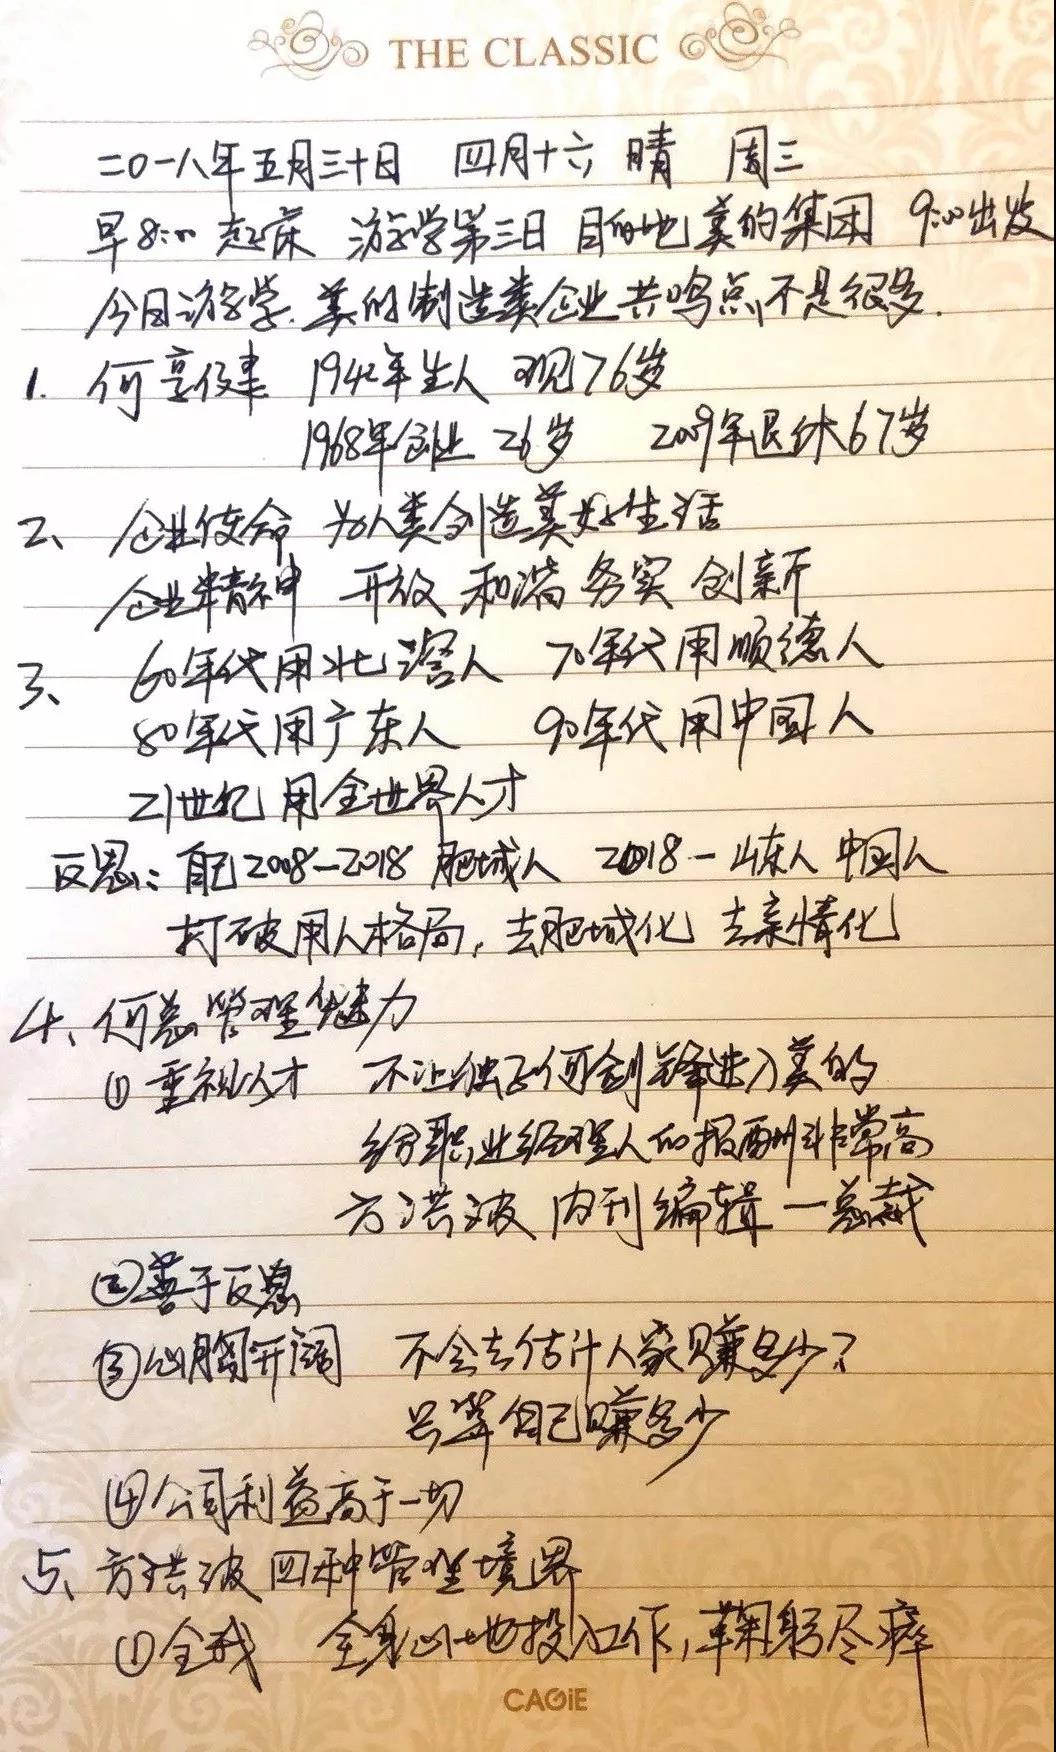 THE CLASSIC
二〇一八年五月三十日 四月十六 晴 周三
早8:00起床 游学第三日 目的地美的集团 9:00出发
今日游学.美的制造类企业共鸣点不是很多.
1. 何享健 1942年生人 现76岁
1968年创业 26岁 2009年退休67岁
2、企业使命 为人类创造美好生活
企业精神 开放 和谐 务实 创新
3、60年代用北滘人 70年代用顺德人
80年代用广东人 90年代用中国人
21世纪 用全世界人才
反思:自己2008—2018 肥城人 2018—山东人 中国人
打破用人格局,去肥城化 去亲情化
4、何总管理魅力
①重视人才 不让独子何剑锋进入美的
给职业经理人的报酬非常高
方洪波 内刊编辑—总裁
②善于反思
③心胸开阔 不会去估计人家赚多少?
只算自己赚多少
④公司利益高于一切
5、方洪波 四种管理境界
①全我 全身心地投入工作,鞠躬尽瘁
CAGiE